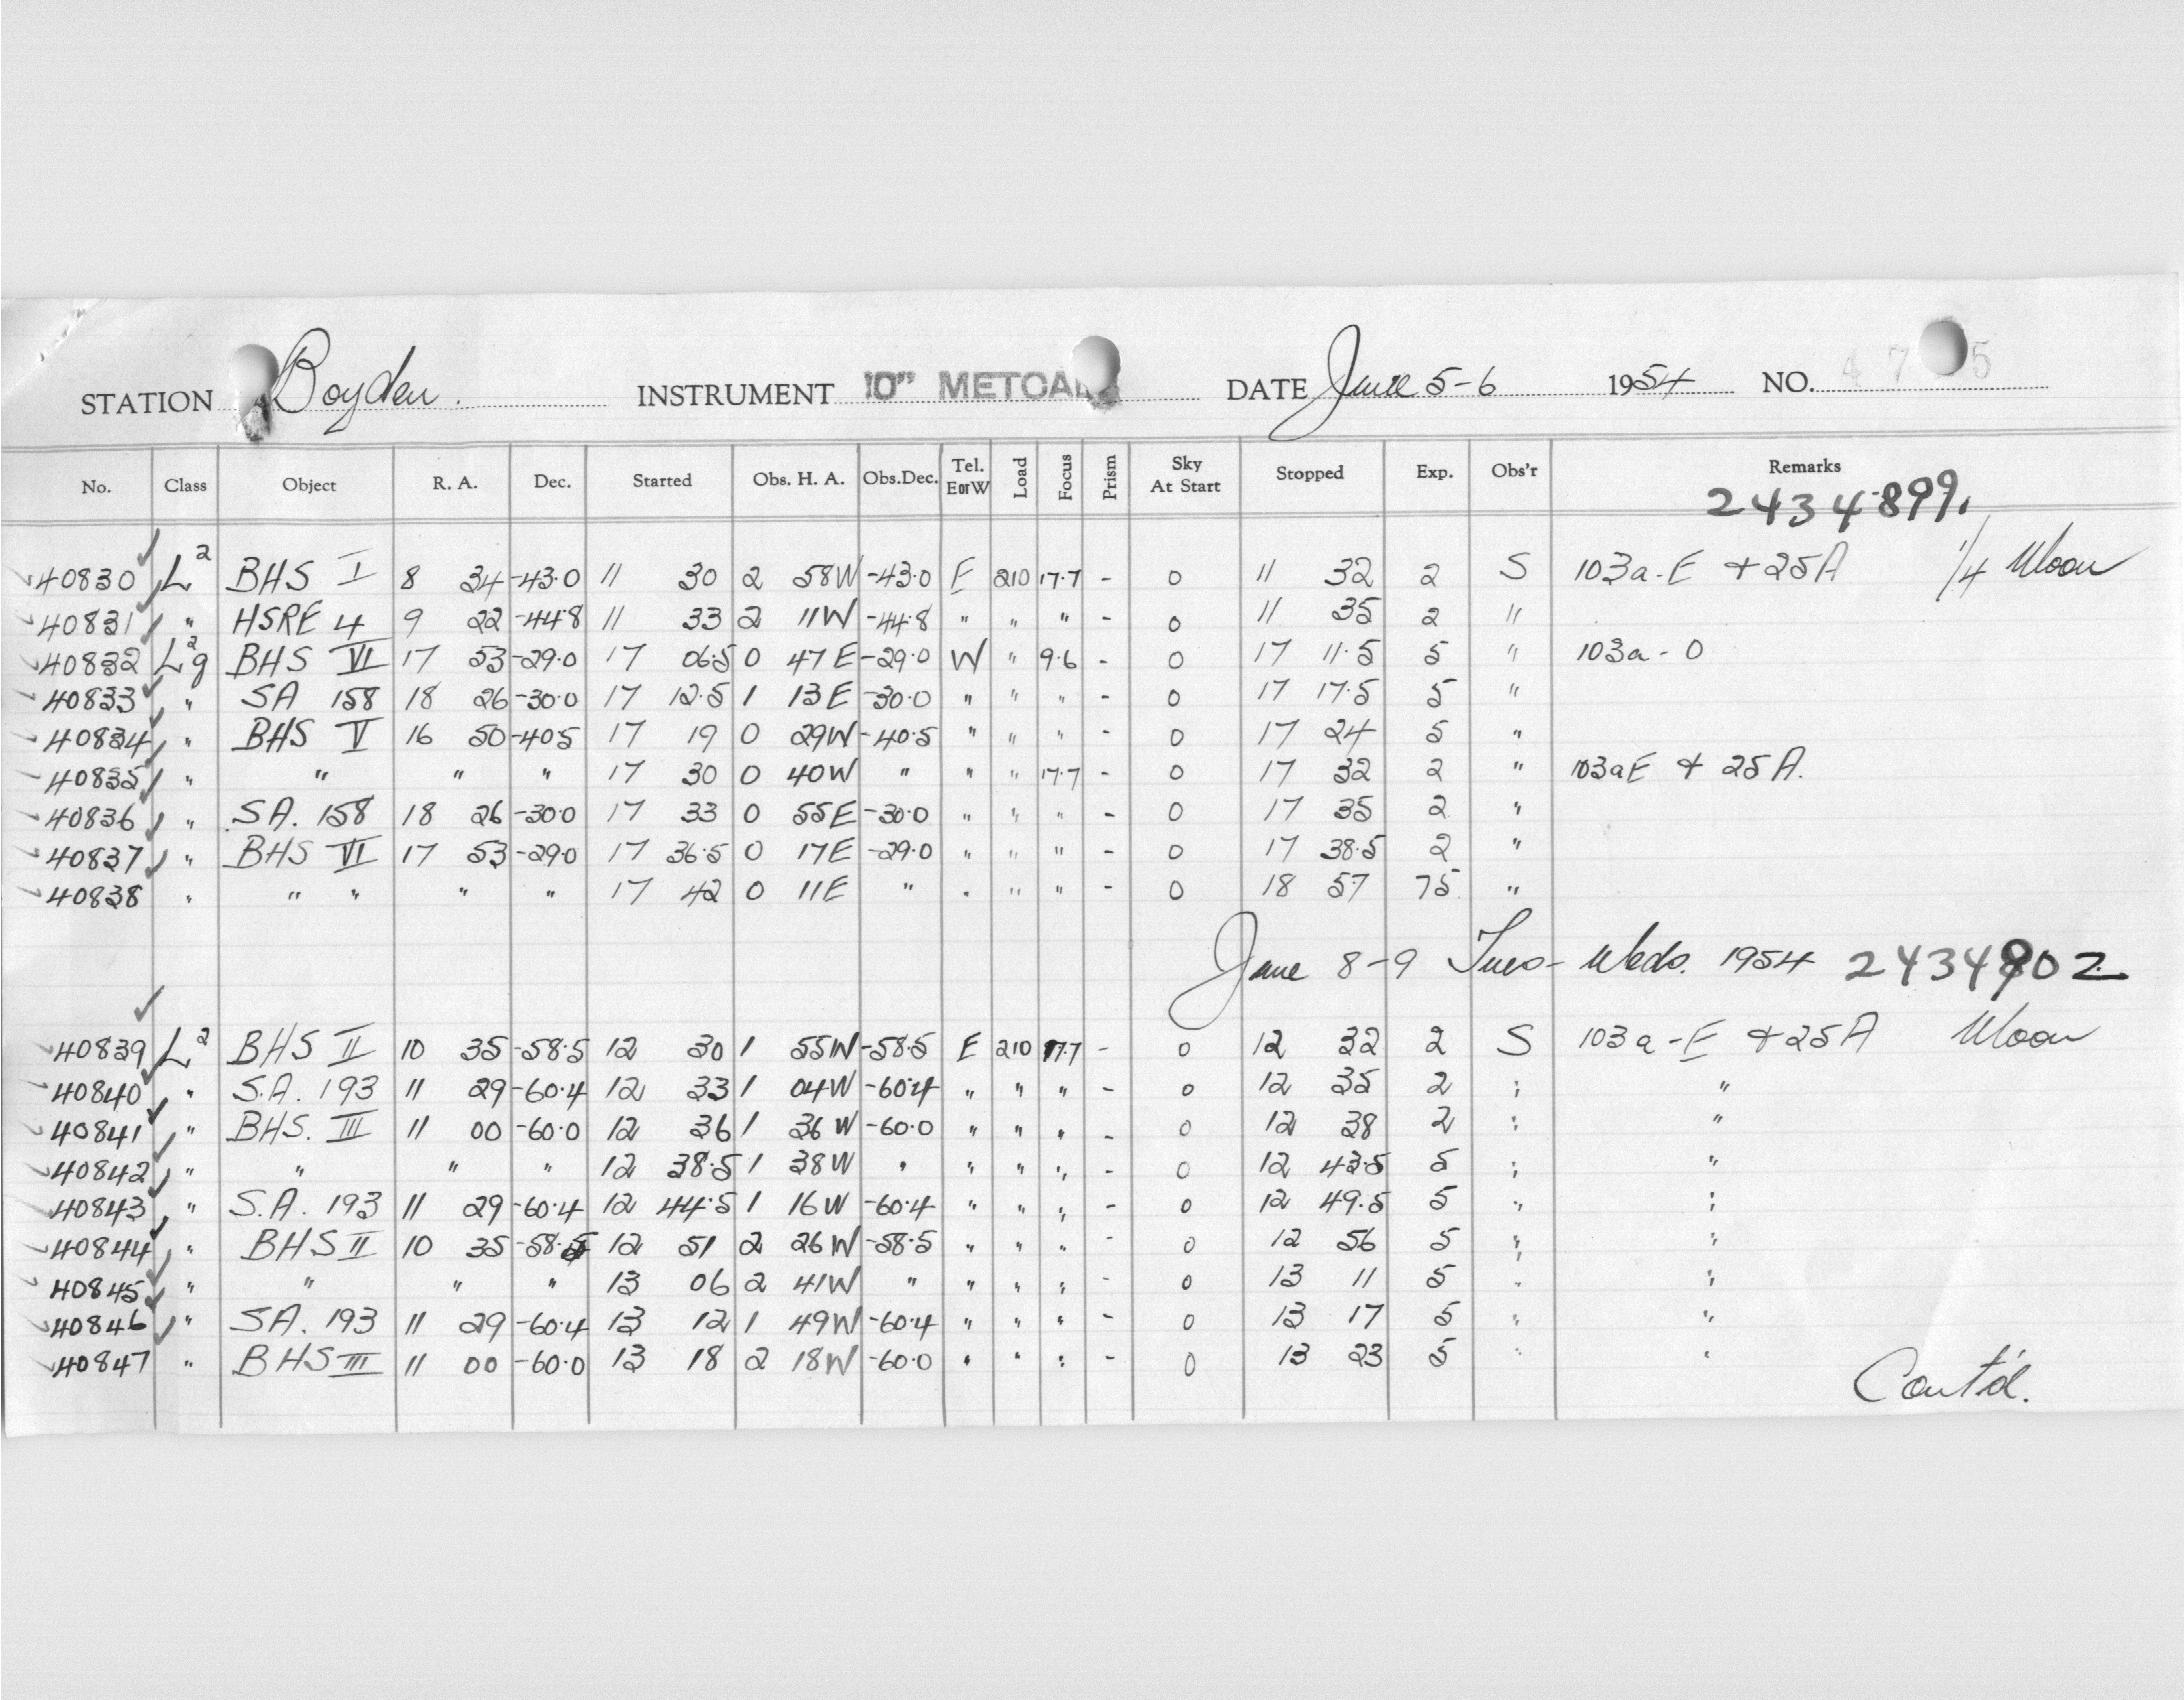 STATION Boyden. INSTRUMENT 10" METCAL DATE June 5-6 1954 NO. 4 7 5
No. Class Object R. A. Dec. Started Obs. H. A. Obs.Dec. Tel. E or W Load Focus Prism Sky At Start Stopped Exp. Obs'r Remarks
2434899.
40830 L2 BHS I 8 34 -43.0 11 30 2 58W -43.0 E 210 17.7 - 0 11 32 2 S 103a-E + 25A 1/4 Moon
40831 " HSRE 4 9 22 -44.8 11 33 2 11W -44.8 " " " - 0 11 35 2 "
40832 L2g BHS VI 17 53 -29.0 17 06.5 0 47E -29.0 W " 9.6 - 0 17 11.5 5 " 103a-O
40833 " SA 158 18 26 -30.0 17 12.5 1 13E -30.0 " " " - 0 17 17.5 5 "
40834 " BHS V 16 50 -40.5 17 19 0 29W -40.5 " " " - 0 17 24 5 "
40835 " " " " 17 30 0 40W " " " 17.7 - 0 17 32 2 " 103aE + 25A.
40836 " S.A. 158 18 26 -30.0 17 33 0 55E -30.0 " " " - 0 17 35 2 "
40837 " BHS VI 17 53 -29.0 17 36.5 0 17E -29.0 " " " - 0 17 38.5 2 "
40838 " " " " " 17 42 0 11E " " " " - 0 18 57 75 "
June 8-9 Tues-Weds. 1954 2434902
40839 L2 BHS II 10 35 -58.5 12 30 1 55W -58.5 E 210 17.7 - 0 12 32 2 S 103a-E + 25A Moon
40840 " S.A. 193 11 29 -60.4 12 33 1 04W -60.4 " " " - 0 12 35 2 " "
40841 " BHS. III 11 00 -60.0 12 36 1 36W -60.0 " " " - 0 12 38 2 " "
40842 " " " " 12 38.5 1 38W " " " " - 0 12 43.5 5 " "
40843 " S.A. 193 11 29 -60.4 12 44.5 1 16W -60.4 " " " - 0 12 49.5 5 " "
40844 " BHS II 10 35 -58.5 12 51 2 26W -58.5 " " " - 0 12 56 5 " "
40845 " " " " 13 06 2 41W " " " " - 0 13 11 5 " "
40846 " SA. 193 11 29 -60.4 13 12 1 49W -60.4 " " " - 0 13 17 5 " "
40847 " BHS III 11 00 -60.0 13 18 2 18W -60.0 " " " - 0 13 23 5 " "
Cont'd.